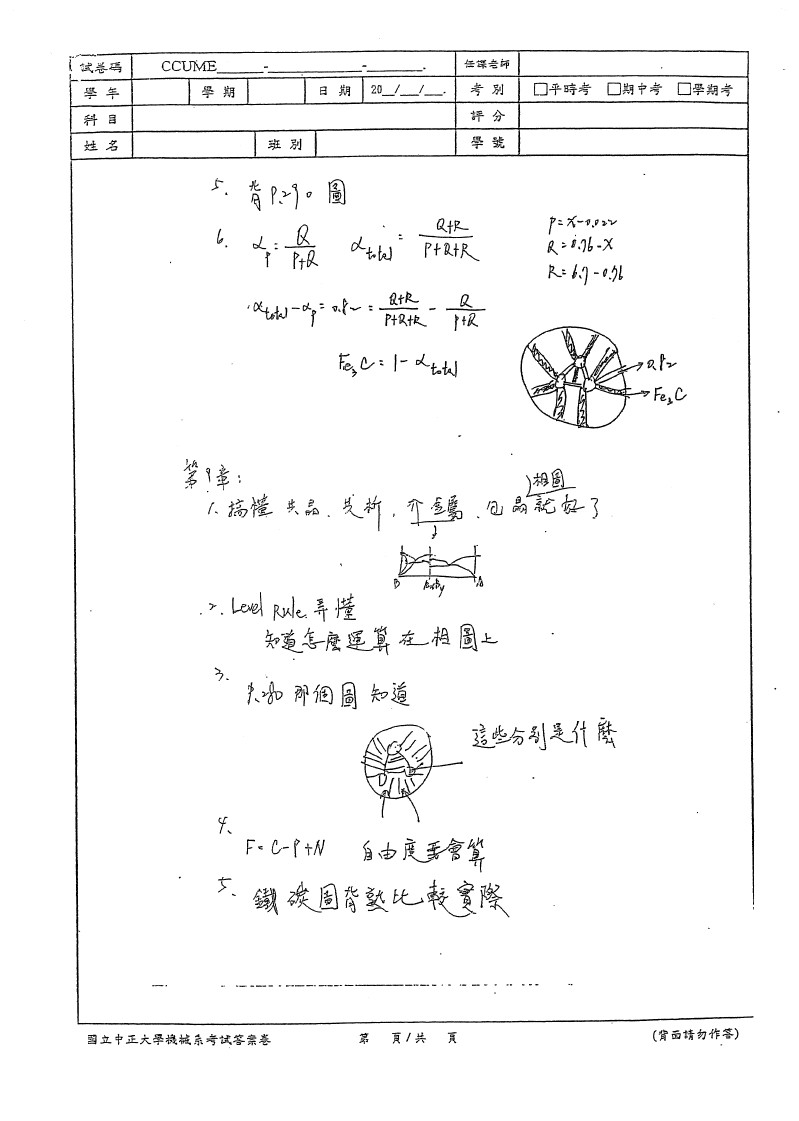 試卷碼 CCUME______-____________-_______. 任課老師
學 年 學 期 日 期 20__/___/___. 考 別 □平時考 □期中考 □學期考
科 目 評 分
姓 名 班 別 學 號
5. 背P.290 圖
6. αp = Q/(P+Q) αtotal = (Q+R)/(P+Q+R)
P=X-0.022
Q=0.76-X
R=6.7-0.76
αtotal-αp=0.82=(Q+R)/(P+Q+R) - Q/(P+Q)
Fe3C=1-αtotal
0.82
Fe3C
第9章:
相圖
1. 搞懂 共晶、共析、介金屬、包晶就好了
B AxBy A
2. Level Rule 弄懂
知道怎麼運算在相圖上
3.
那個圖 知道
這些分別是什麼
4.
F=C-P+N 自由度要會算
5.
鐵碳圖背熟比較實際
國立中正大學機械系考試答案卷 第 頁/共 頁 (背面請勿作答)